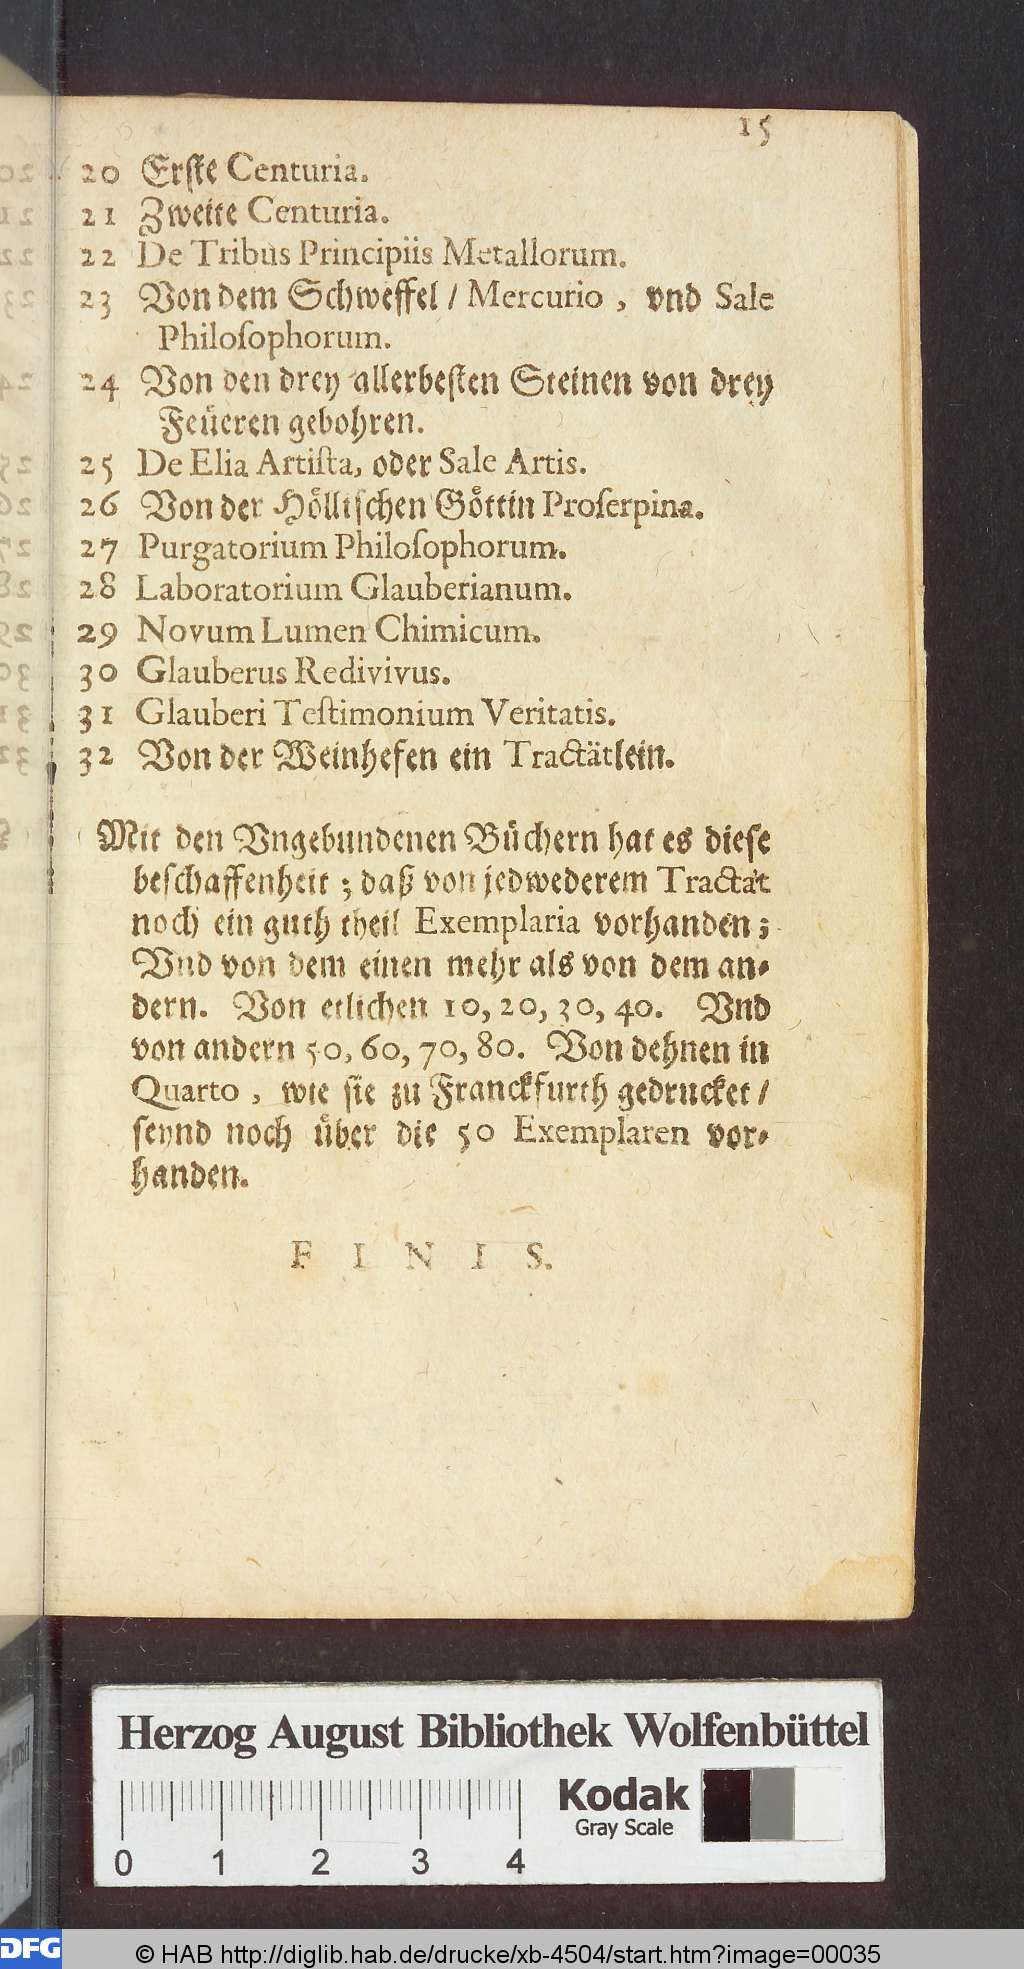 15
20 Erſte Centuria.
21 Zweite Centuria.
22 De Tribus Principiis Metallorum.
23 Von dem Schweffel / Mercurio , vnd Sale
Philoſophorum.
24 Von den drey allerbeſten Steinen von drey
Feuͤeren gebohren.
25 De Elia Artiſta, oder Sale Artis.
26 Von der Hoͤlliſchen Goͤttin Proſerpina.
27 Purgatorium Philoſophorum.
28 Laboratorium Glauberianum.
29 Novum Lumen Chimicum.
30 Glauberus Redivivus.
31 Glauberi Teſtimonium Veritatis.
32 Von der Weinhefen ein Tractätlein.
Mit den Vngebundenen Buͤchern hat es dieſe
beſchaffenheit ; daß von jedwederem Tractat
noch ein guth theil Exemplaria vorhanden ;
Vnd von dem einen mehr als von dem an⸗
dern. Von etlichen 10, 20, 30, 40. Vnd
von andern 50, 60, 70, 80. Von dehnen in
Quarto , wie ſie zu Franckfurth gedrucket /
ſeynd noch uͤber die 50 Exemplaren vor⸗
handen.
F I N I S.
Herzog August Bibliothek Wolfenbüttel
Kodak
Gray Scale
0 1 2 3 4
DFG © HAB http://diglib.hab.de/drucke/xb-4504/start.htm?image=00035